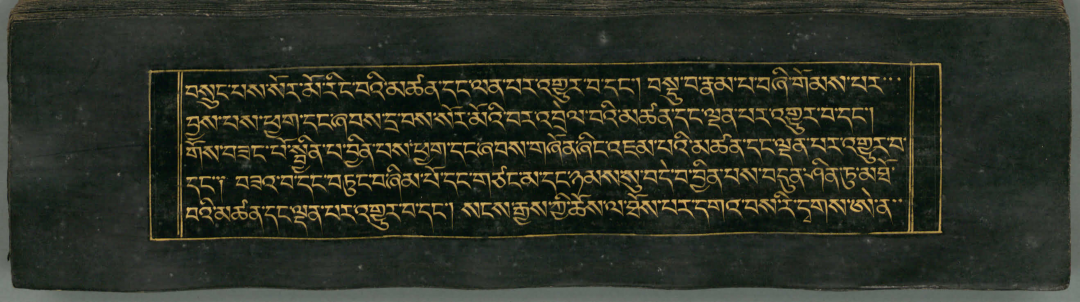 བསྲུང་པས་སོར་མོ་རིང་བའི་མཚན་དང་ལྡན་པར་འགྱུར་བ་དང་། བསྡུ་བ་རྣམ་པ་བཞི་གོམས་པར་
བྱས་པས་ཕྱག་དང་ཞབས་དྲ་བས་སོར་མོའི་བར་འབྲེལ་བའི་མཚན་དང་ལྡན་པར་འགྱུར་བ་དང་།
གོས་བཟང་པོ་སྦྱིན་པ་བྱིན་པས་ཕྱག་དང་ཞབས་གཤེན་ཤིང་འཇམ་པའི་མཚན་དང་ལྡན་པར་འགྱུར་བ་
དང་། བཟའ་བ་དང་བཏུང་བ་ཞིམ་པོ་དང་གཙང་མ་དང་ཉམས་སུ་བདེ་བ་བྱིན་པས་བདུན་ཤིན་ཏུ་མཐོ་
བའི་མཚན་དང་ལྡན་པར་འགྱུར་བ་དང་། སངས་རྒྱས་ཀྱི་ཆོས་ལ་ཐོས་པར་དགའ་བས་